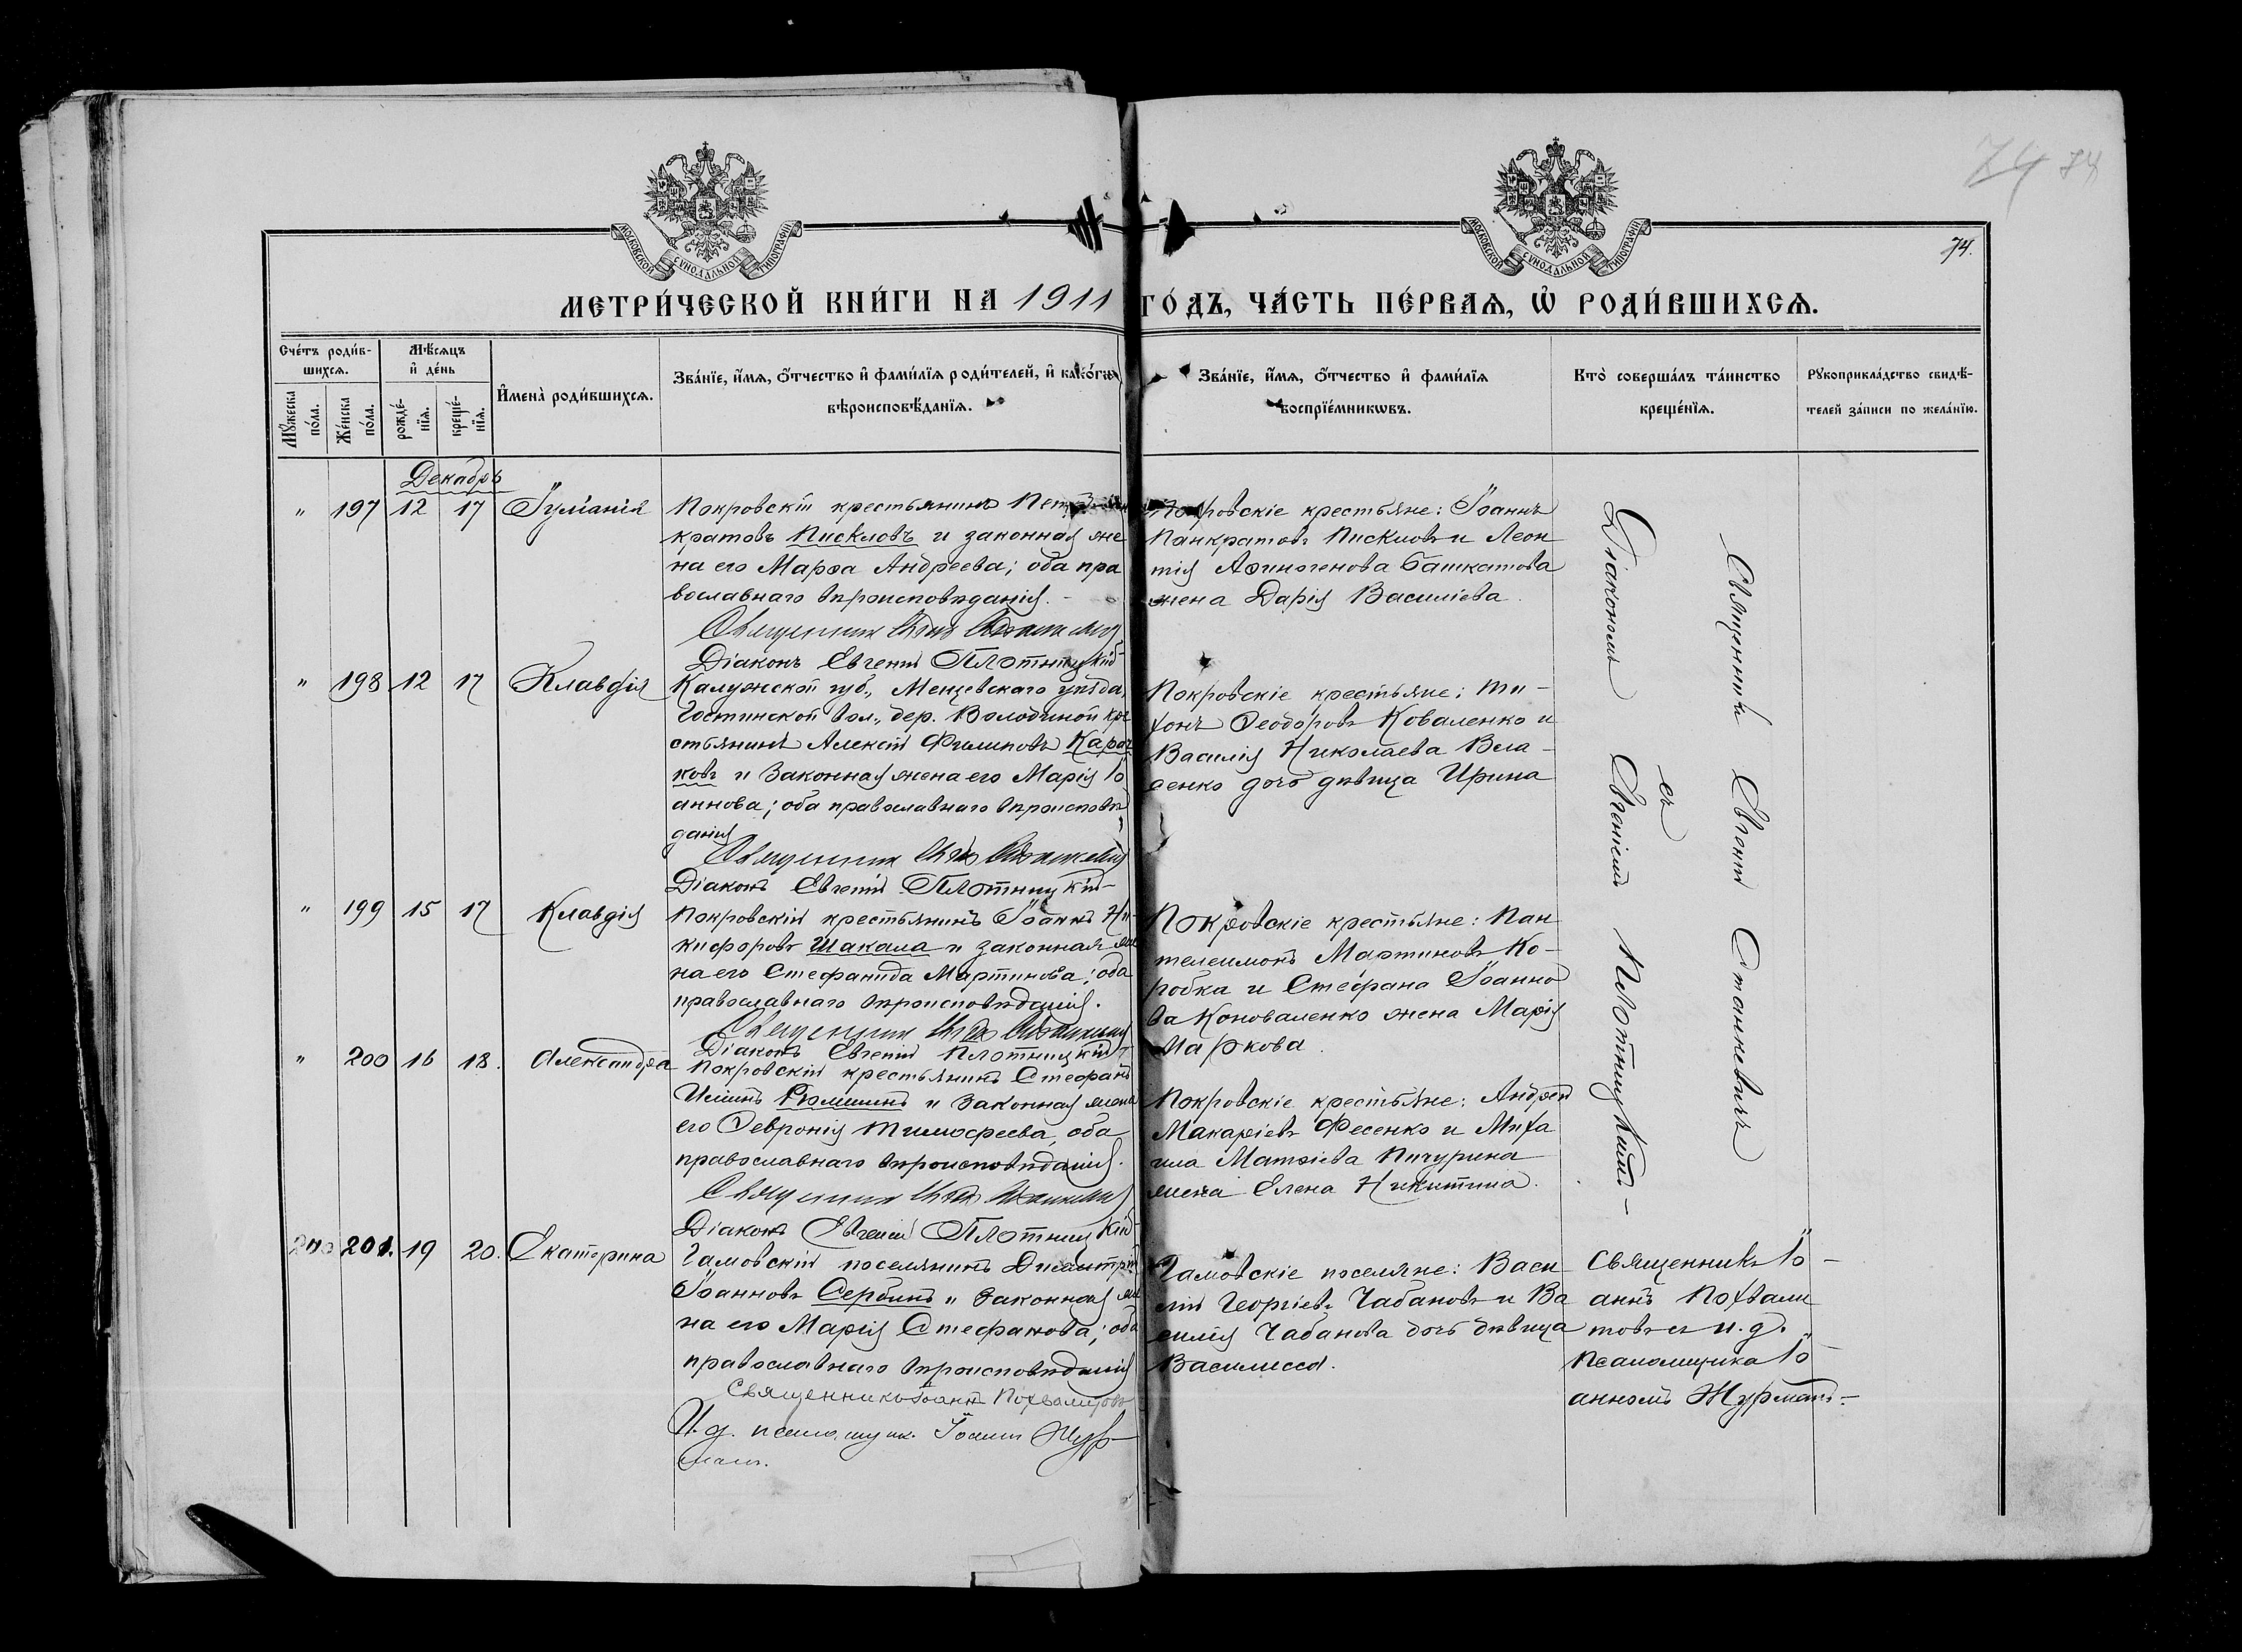 74 74
74.
МОСКОВСКОЙ СѴНОДАЛЬНОЙ ТИПОГРАФІИ
МОСКОВСКОЙ СѴНОДАЛЬНОЙ ТИПОГРАФІИ
МЕТРИ́ЧЕСКОЙ КНИ́ГИ НА 1911 ГО́ДЪ, ЧА́СТЬ ПЕ́РВАѦ, Ѡ҆ РОДИ́ВШИХСѦ.
Сче́тъ роди́в-
шихсѧ.
Мꙋ́жеска по́ла.
Же́нска по́ла.
Мѣ́сѧцъ
и҆ де́нь
рожде́-
нїѧ.
креще́-
нїѧ.
И҆мена̀ роди́вшихсѧ.
Зва́нїе, и҆́мѧ, о҆́тчество и҆ фами́лїѧ роди́телей, и҆ како́гѡ
вѣроисповѣ́данїѧ.
Зва́нїе, и҆́мѧ, о҆́тчество и҆ фами́лїѧ
воспрїе́мникѡвъ.
Кто̀ соверша́лъ та́инство
креще́нїѧ.
Рꙋкоприкла́дство свидѣ́-
телей за́писи по жела́нїю.
Декабрь
" 197 12 17 Іуліанія
Покровскій крестьянинъ
кратовъ Пискловъ и законная же
на его Марѳа Андреева; оба пра
вославнаго вѣроисповѣданія.
Священникъ
Діаконъ Евгеній Плотницкій
Покровскіе крестьяне: Іоаннъ
Панкратовъ Пискловъ и Леон
тія Аѳиногенова Башкатова
жена Дарія Василіева.
" 198 12 17 Клавдія
Калужской губ., уѣзда,
вол., дер. Володиной кре
стьянинъ Алексій Филиповъ
ковъ и законная жена его Марія Іо
аннова; оба православнаго вѣроисповѣ
данія
Священникъ
Діаконъ Евгеній Плотницкій
Покровскіе крестьяне: Ти-
хонъ Ѳеодоровъ Коваленко и
Василія Николаева Вла-
сенко дочь дѣвица Ирина
" 199 15 17 Клавдія
Покровскій крестьянинъ Іоаннъ Ни-
кифоровъ Шакала и законная же
на его Стефанида Мартинова; оба
православнаго вѣроисповѣданія.
Священникъ
Діаконъ Евгеній Плотницкій
Покровскіе крестьяне: Пан
телеимонъ Мартиновъ Ко-
робка и Стефана Іоанно
ва Коноваленко жена Марія
Маркова.
" 200 16 18. Александра
Покровскій крестьянинъ Стефанъ
и законная жена
его Ѳевронія Тимофеева, оба
православнаго вѣроисповѣданія.
Священникъ
Діаконъ Евгеній Плотницкій
Покровскіе крестьяне: Андрей
Макаріевъ Фесенко и Миха
ила Матѳіева Пичурина
жена Елена Никитина.
Священникъ Евгеній Станкевичъ
съ
Діакономъ Евгеніемъ Плотницкимъ-
200 201. 19 20. Екатерина
Гамовскій поселянинъ Димитрій
Іоанновъ Сербинъ и законная же
на его Марія Стефанова; оба
православнаго вѣроисповѣданія
Священникъ Іоаннъ Похвалитовъ
И. д. псаломщик. Іоаннъ Жур-
манъ.
Гамовскіе поселяне: Васи
лій Георгіевъ Чабановъ и Ва
силія Чабанова дочь дѣвица
Василисса.
Священникъ Іо-
аннъ Похвали
товъ съ и. д.
псаломщика Іо-
анномъ Журманъ.-